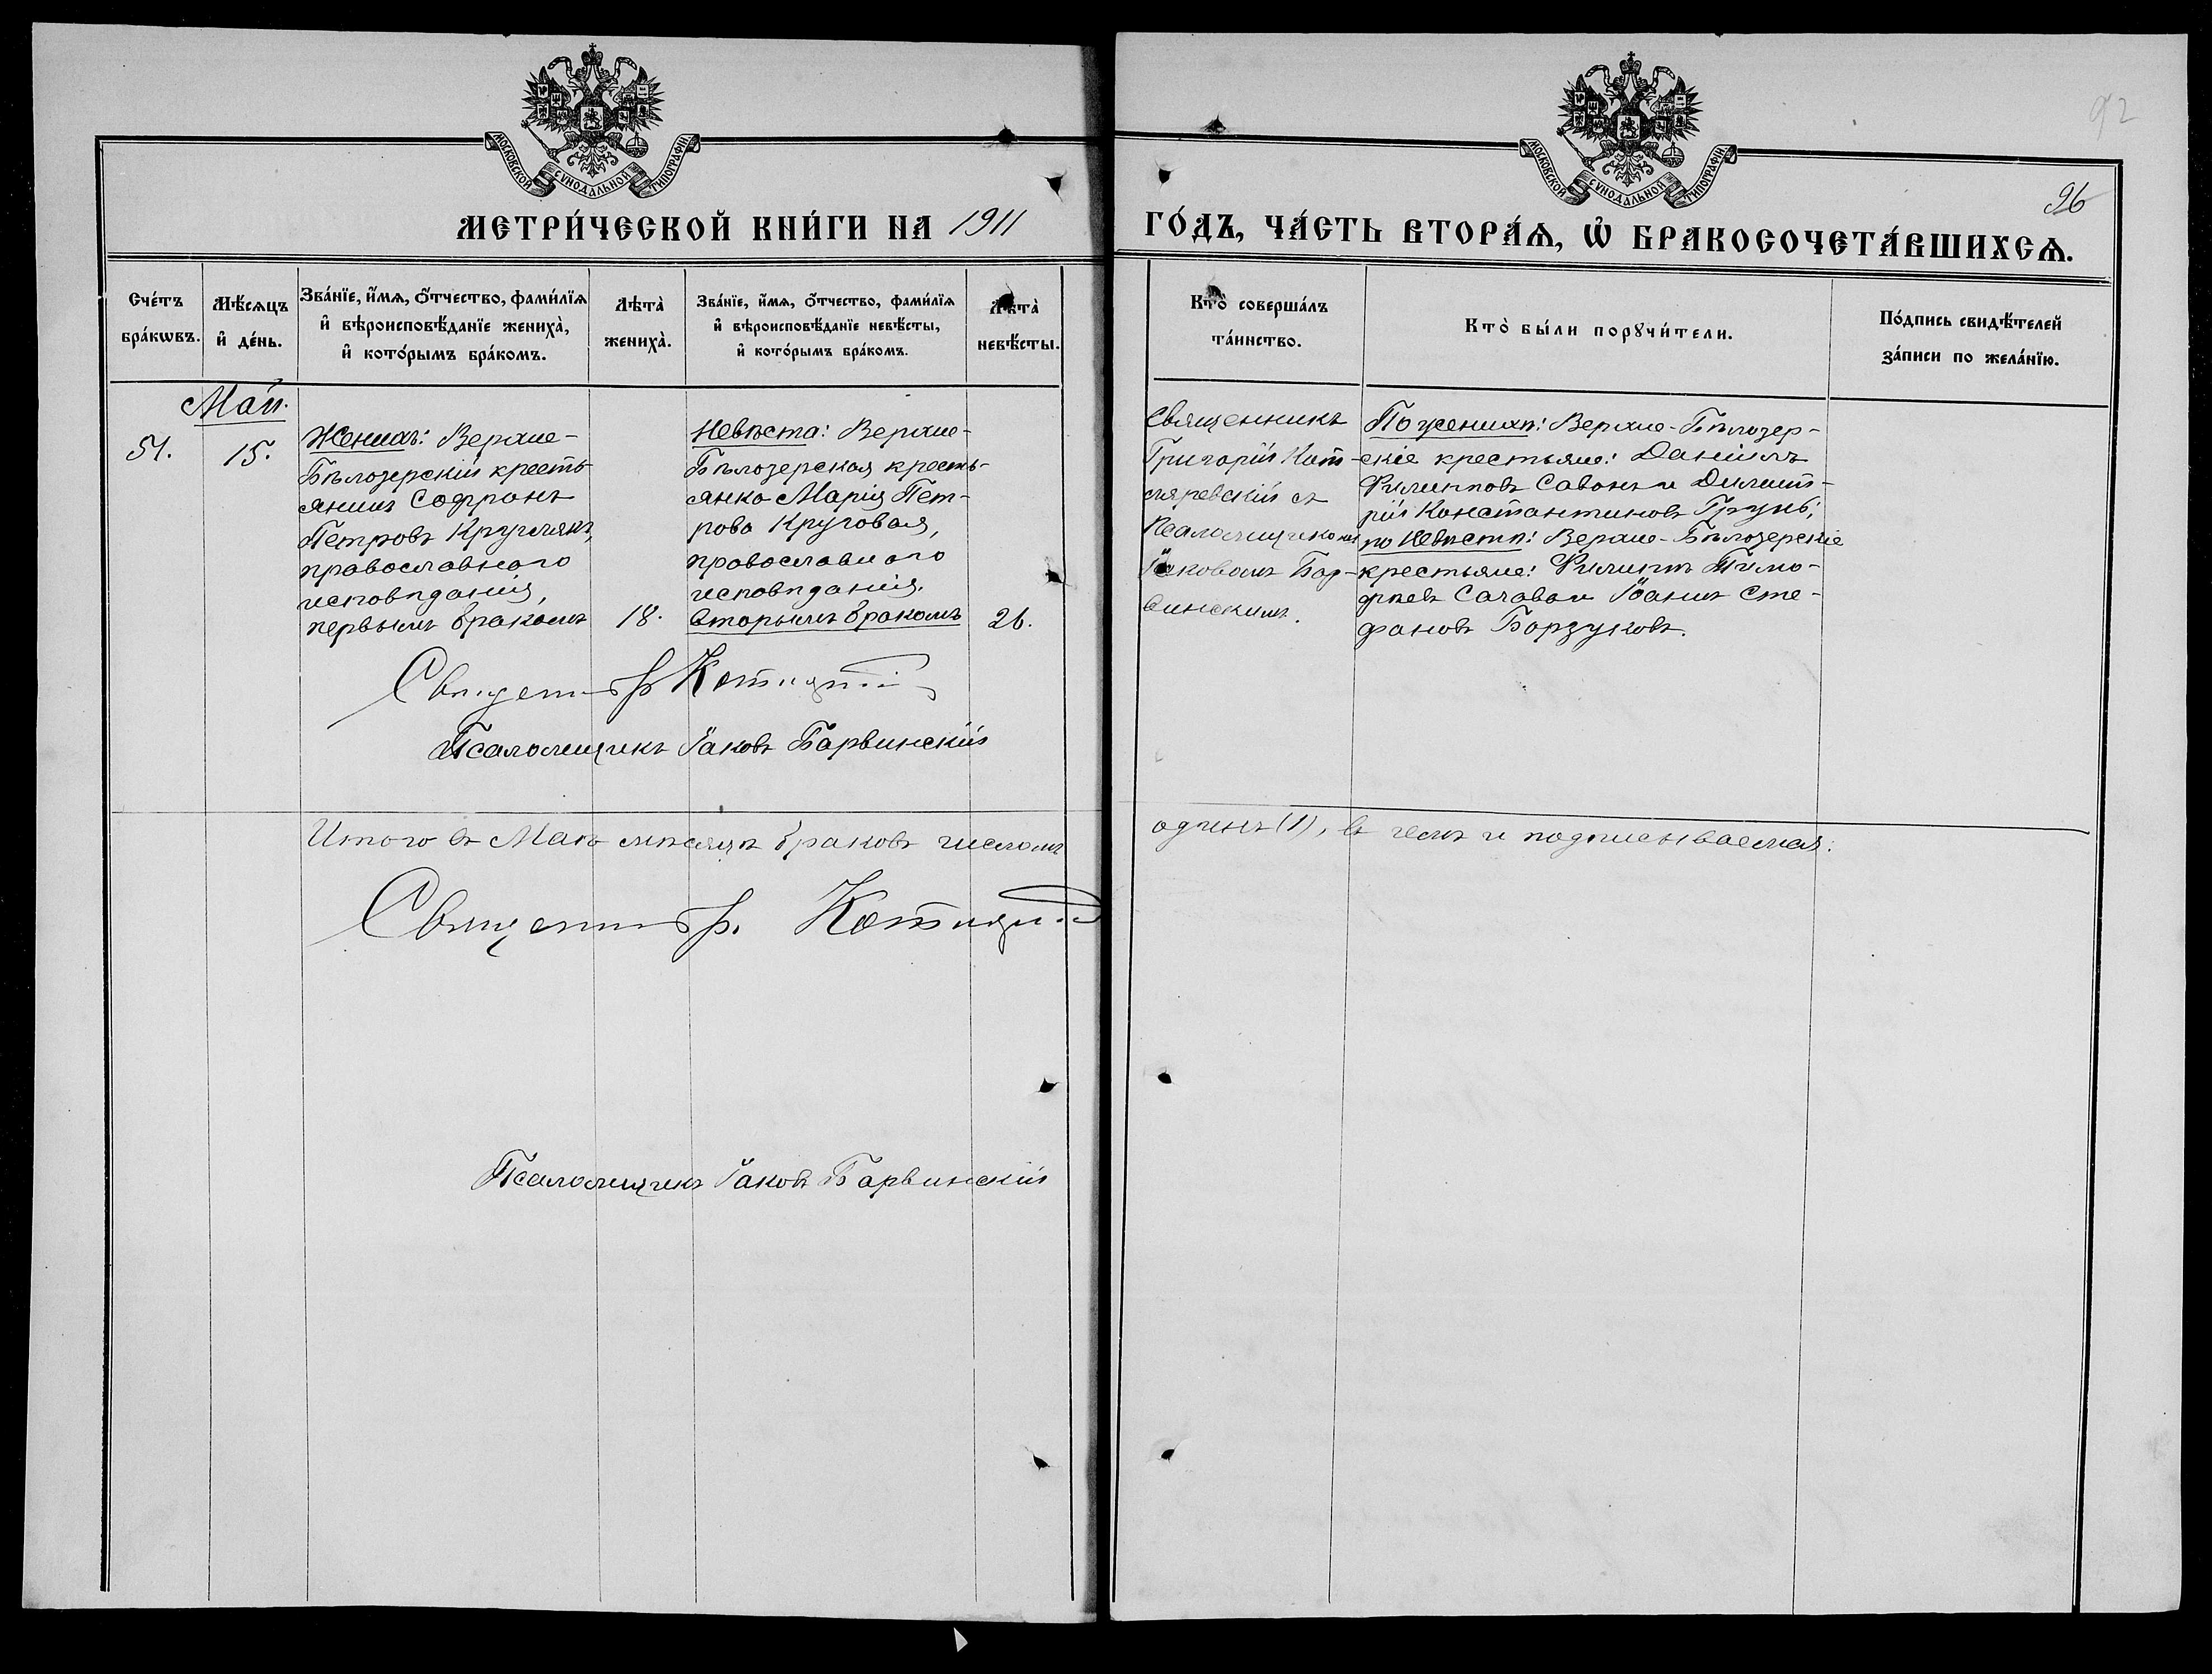 92
96
МОСКОВСКОЙ СѴНОДАЛЬНОЙ ТИПОГРАФІИ.
МОСКОВСКОЙ СѴНОДАЛЬНОЙ ТИПОГРАФІИ.
МЕТРИ́ЧЕСКОЙ КНИ́ГИ НА 1911
ГО́ДЪ, ЧА́СТЬ ВТОРА́Ѧ, Ѡ҆ БРАКОСОЧЕТА́ВШИХСѦ.
Сче́тъ
бра́кѡвъ.
Мѣ́сяцъ
и҆ де́нь.
Зва́нїе, и҆́мѧ, ѻ҆́тчество, фами́лїѧ
и҆ вѣроисповѣ́данїе жениха̀,
и҆ кото́рымъ бра́комъ.
Лѣта̀
жениха̀.
Зва́нїе, и҆́мѧ, ѻ҆́тчество, фами́лїѧ
и҆ вѣроисповѣ́данїе невѣ́сты,
и҆ кото́рымъ бра́комъ.
Лѣта̀
невѣ́сты.
Кто̀ соверша́лъ
та́инство.
Кто̀ бы́ли порꙋчи́тели.
По́дпись свидѣ́телей
за́писи по жела́нїю.
Май.
51.
15.
Женихъ: Верхне-
Бѣлозерскій кресть-
янинъ Софронъ
Петровъ Круглякъ,
православнаго
исповѣданія,
первымъ бракомъ
18.
Невѣста: Верхне-
Бѣлозерская кресть-
янка Марія Пет-
рова Круговая,
православнаго
исповѣданія.
вторымъ бракомъ
26.
Священникъ
Григорій Кот-
ляревскій съ
псаломщикомъ
Іаковомъ Бар-
винскимъ.
По женихѣ: Верхне-Бѣлозер-
скіе крестьяне: Даніилъ
Филипповъ Савонъ и Димит-
рій Константиновъ Грунь;
по невѣстѣ: Верхне-Бѣлозерскіе
крестьяне: Филиппъ Тимо-
феевъ Сачава и Іоаннъ Сте-
фановъ Борзуковъ.
Псаломщикъ Іаковъ Барвинскій
Итого въ Маѣ мѣсяцѣ браковъ числомъ
одинъ (1), въ чемъ и подписываемся:
Псаломщикъ Іаковъ Барвинскій